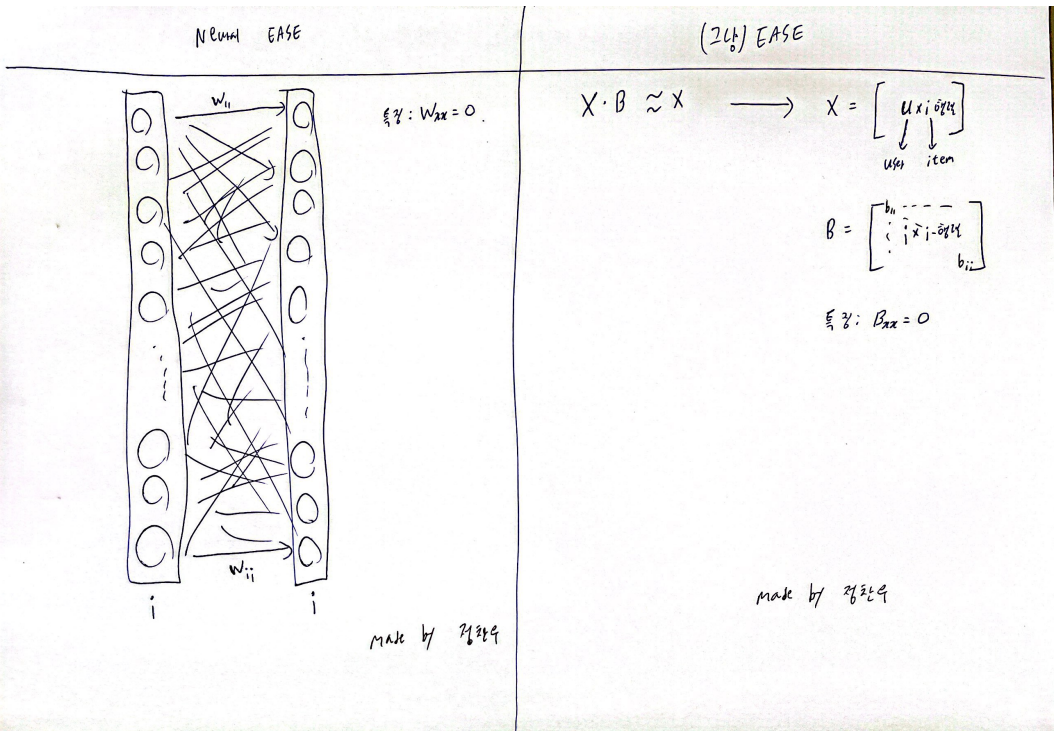 Neural EASE
W₁₁
특징: Wₓₓ = 0.
Wᵢᵢ
i i
made by 정찬우
(그냥) EASE
X · B ≈ X → X = [ u x i 행렬 ]
user item
B = [ b₁₁ i x i 행렬 bᵢᵢ ]
특징: Bₓₓ = 0
made by 정찬우